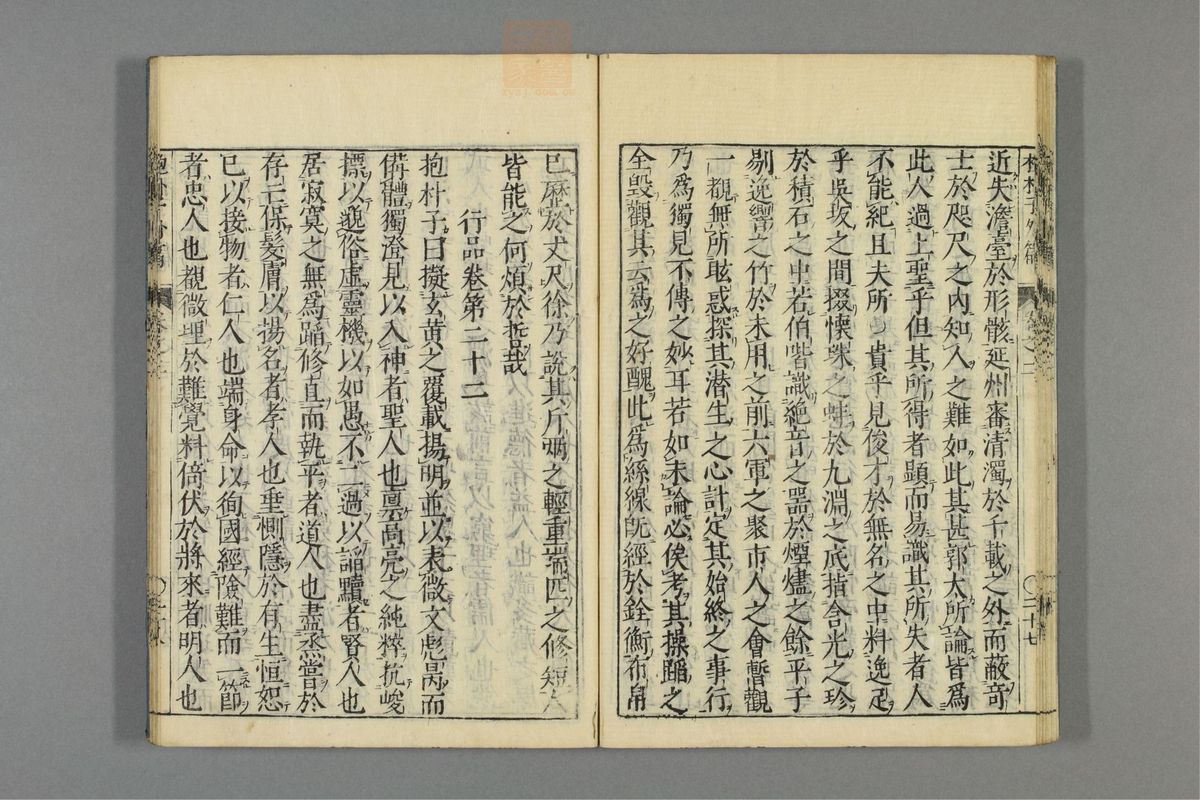 近失澹臺於形骸延州審清濁於千載之外而蔽奇
士於咫尺之内知人之難如此其甚郭太所論皆爲
此人過上聖乎但其所得者顯而易識其所失者人
不能紀且夫所貴乎見俊才於無名之中料逸足
乎吳坂之間掇懷珠之蚌於九淵之底指含光之珍
於積石之中若伯喈識絶音之器於煙燼之餘平子
剔逸響之竹於未用之前六軍之聚市人之會暫觀
一覩無所眩惑探其潜生之心計定其始終之事行
乃爲獨見不傳之妙耳若如未論必俟考其操蹈之
全毀觀其云爲之好醜此爲絲線既經於銓衡布帛
已歷於丈尺徐乃說其斤兩之輕重端匹之修短人
皆能之何煩於哲哉
行品卷第二十二
抱朴子曰擬玄黃之覆載揚明並以表微文彪昺而
備體獨澄見以入神者聖人也稟高亮之純粹抗峻
標以邈俗虛靈機以如愚不二過以謟黷者賢人也
居寂寞之無爲蹈修直而執平者道人也盡烝嘗於
存亡保髮膚以揚名者孝人也垂惻隱於有生恒恕
已以接物者仁人也端身命以徇國經險難而一節
者忠人也覩微理於難覺料倚伏於將來者明人也
抱朴子外篇
卷之二
二十七